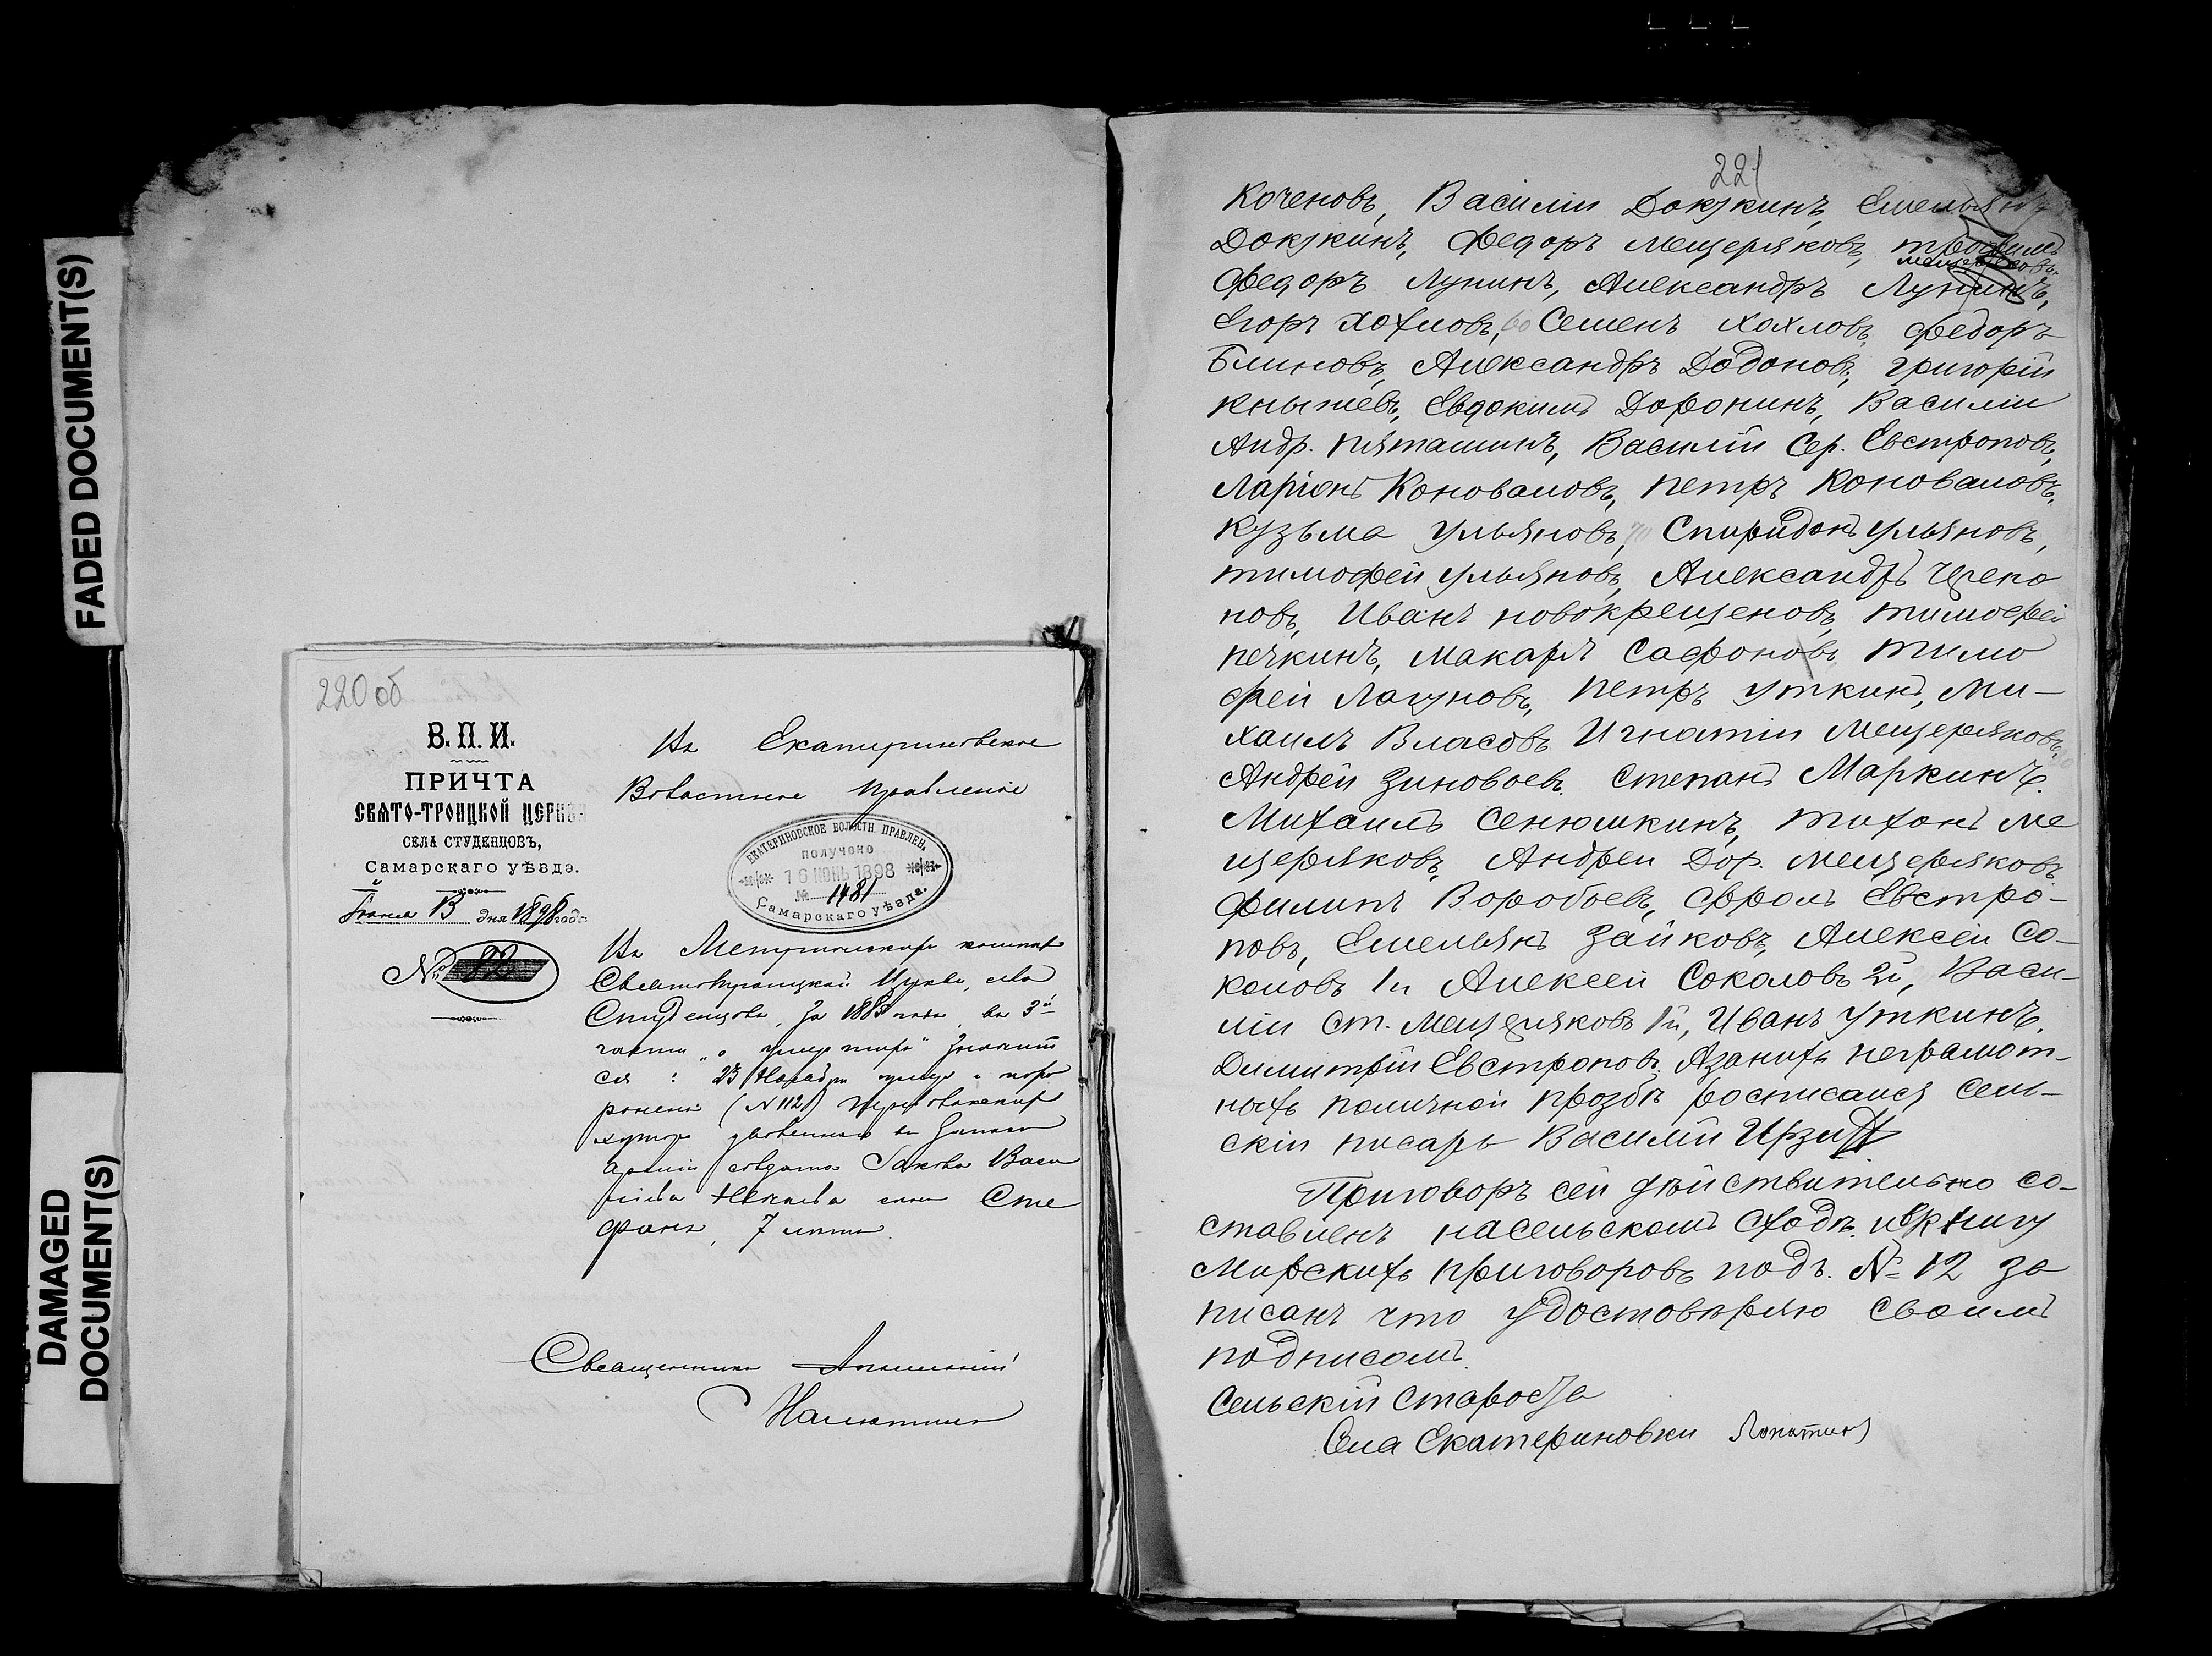 FADED DOCUMENT(S)
DAMAGED
DOCUMENT(S)
220 об
В. П. И.
ПРИЧТА
СВЯТО-ТРОИЦКОЙ ЦЕРКВ
СЕЛА СТУДЕНЦОВЪ,
Самарскаго уѣзда.
13 дня 1898 года
№ 82
Въ Екатериновское
Волостное Правленіе
ЕКАТЕРИНОВСКОЕ ВОЛОСТН. ПРАВЛЕН.
получено
16 ІЮНЬ 1898
№ 1481
Самарскаго уѣзда.
Въ Метрической
Святотроицкой Церкви, села
Студенцовъ, за 188 года, въ 3й
части „о умерших" значит
ся: 23 Ноября умеръ и похо
роненъ (№ 112)
хутора уволеннаго въ запасъ
арміи солдата Іакова Васи
льева сынъ Сте
фанъ, 7 лѣтъ.
Священникъ
221
Коченовъ, Василіи Докукинъ, Емельянъ
Докукинъ, Федоръ Мещеряковъ, трофимъ
мещеряковъ
Федоръ Лунинъ, Александръ Лунинъ,
Егоръ Хохловъ, 60 Семенъ Хохловъ, Федоръ
Блиновъ, Александръ Додоновъ, григорій
Кнышевъ, Евдокимъ Доронинъ, Василіи
Андр. Пяташинъ, Василій Сер. Евстроповъ,
Ларіонъ Коноваловъ, Петръ Коноваловъ,
Кузьма Ульяновъ, 70 Спиридонъ Ульяновъ,
тимофей Ульяновъ, Александръ Щепо
новъ, Иванъ новокрещеновъ, тимофей
Печкинъ, Макаръ Сафоновъ Тимо
фей Лагуновъ, Петръ Уткинъ, Ми–
хаилъ Власовъ Игнатіи Мещеряковъ,
Андрей Зиновьевъ. Степанъ Маркинъ.
Михаилъ Сенюшкинъ, Тихонъ Ме
щеряковъ, Андреи Дор. Мещеряковъ
Филипъ Воробьевъ, Фролъ Евстро–
повъ, Емельянъ Зайковъ, Алексѣи Со–
коловъ 1й Алексѣй Соколовъ 2й, Васи–
лій Ст. Мещеряковъ 1й, Иванъ Уткинъ,
Димитрій Евстроповъ. Азанихъ неграмот–
ныхъ поличной прозбѣ росписался сель–
скій писарь Василій
Приговоръ сей дѣйствительно со–
ставленъ насельскомъ сходѣ. ивкнигу
Мирскихъ приговоровъ подъ. № 12 за
писанъ что удостовѣряю своимъ
подписомъ.
Сельскій Староста
Села Екатериновки Лопатинъ